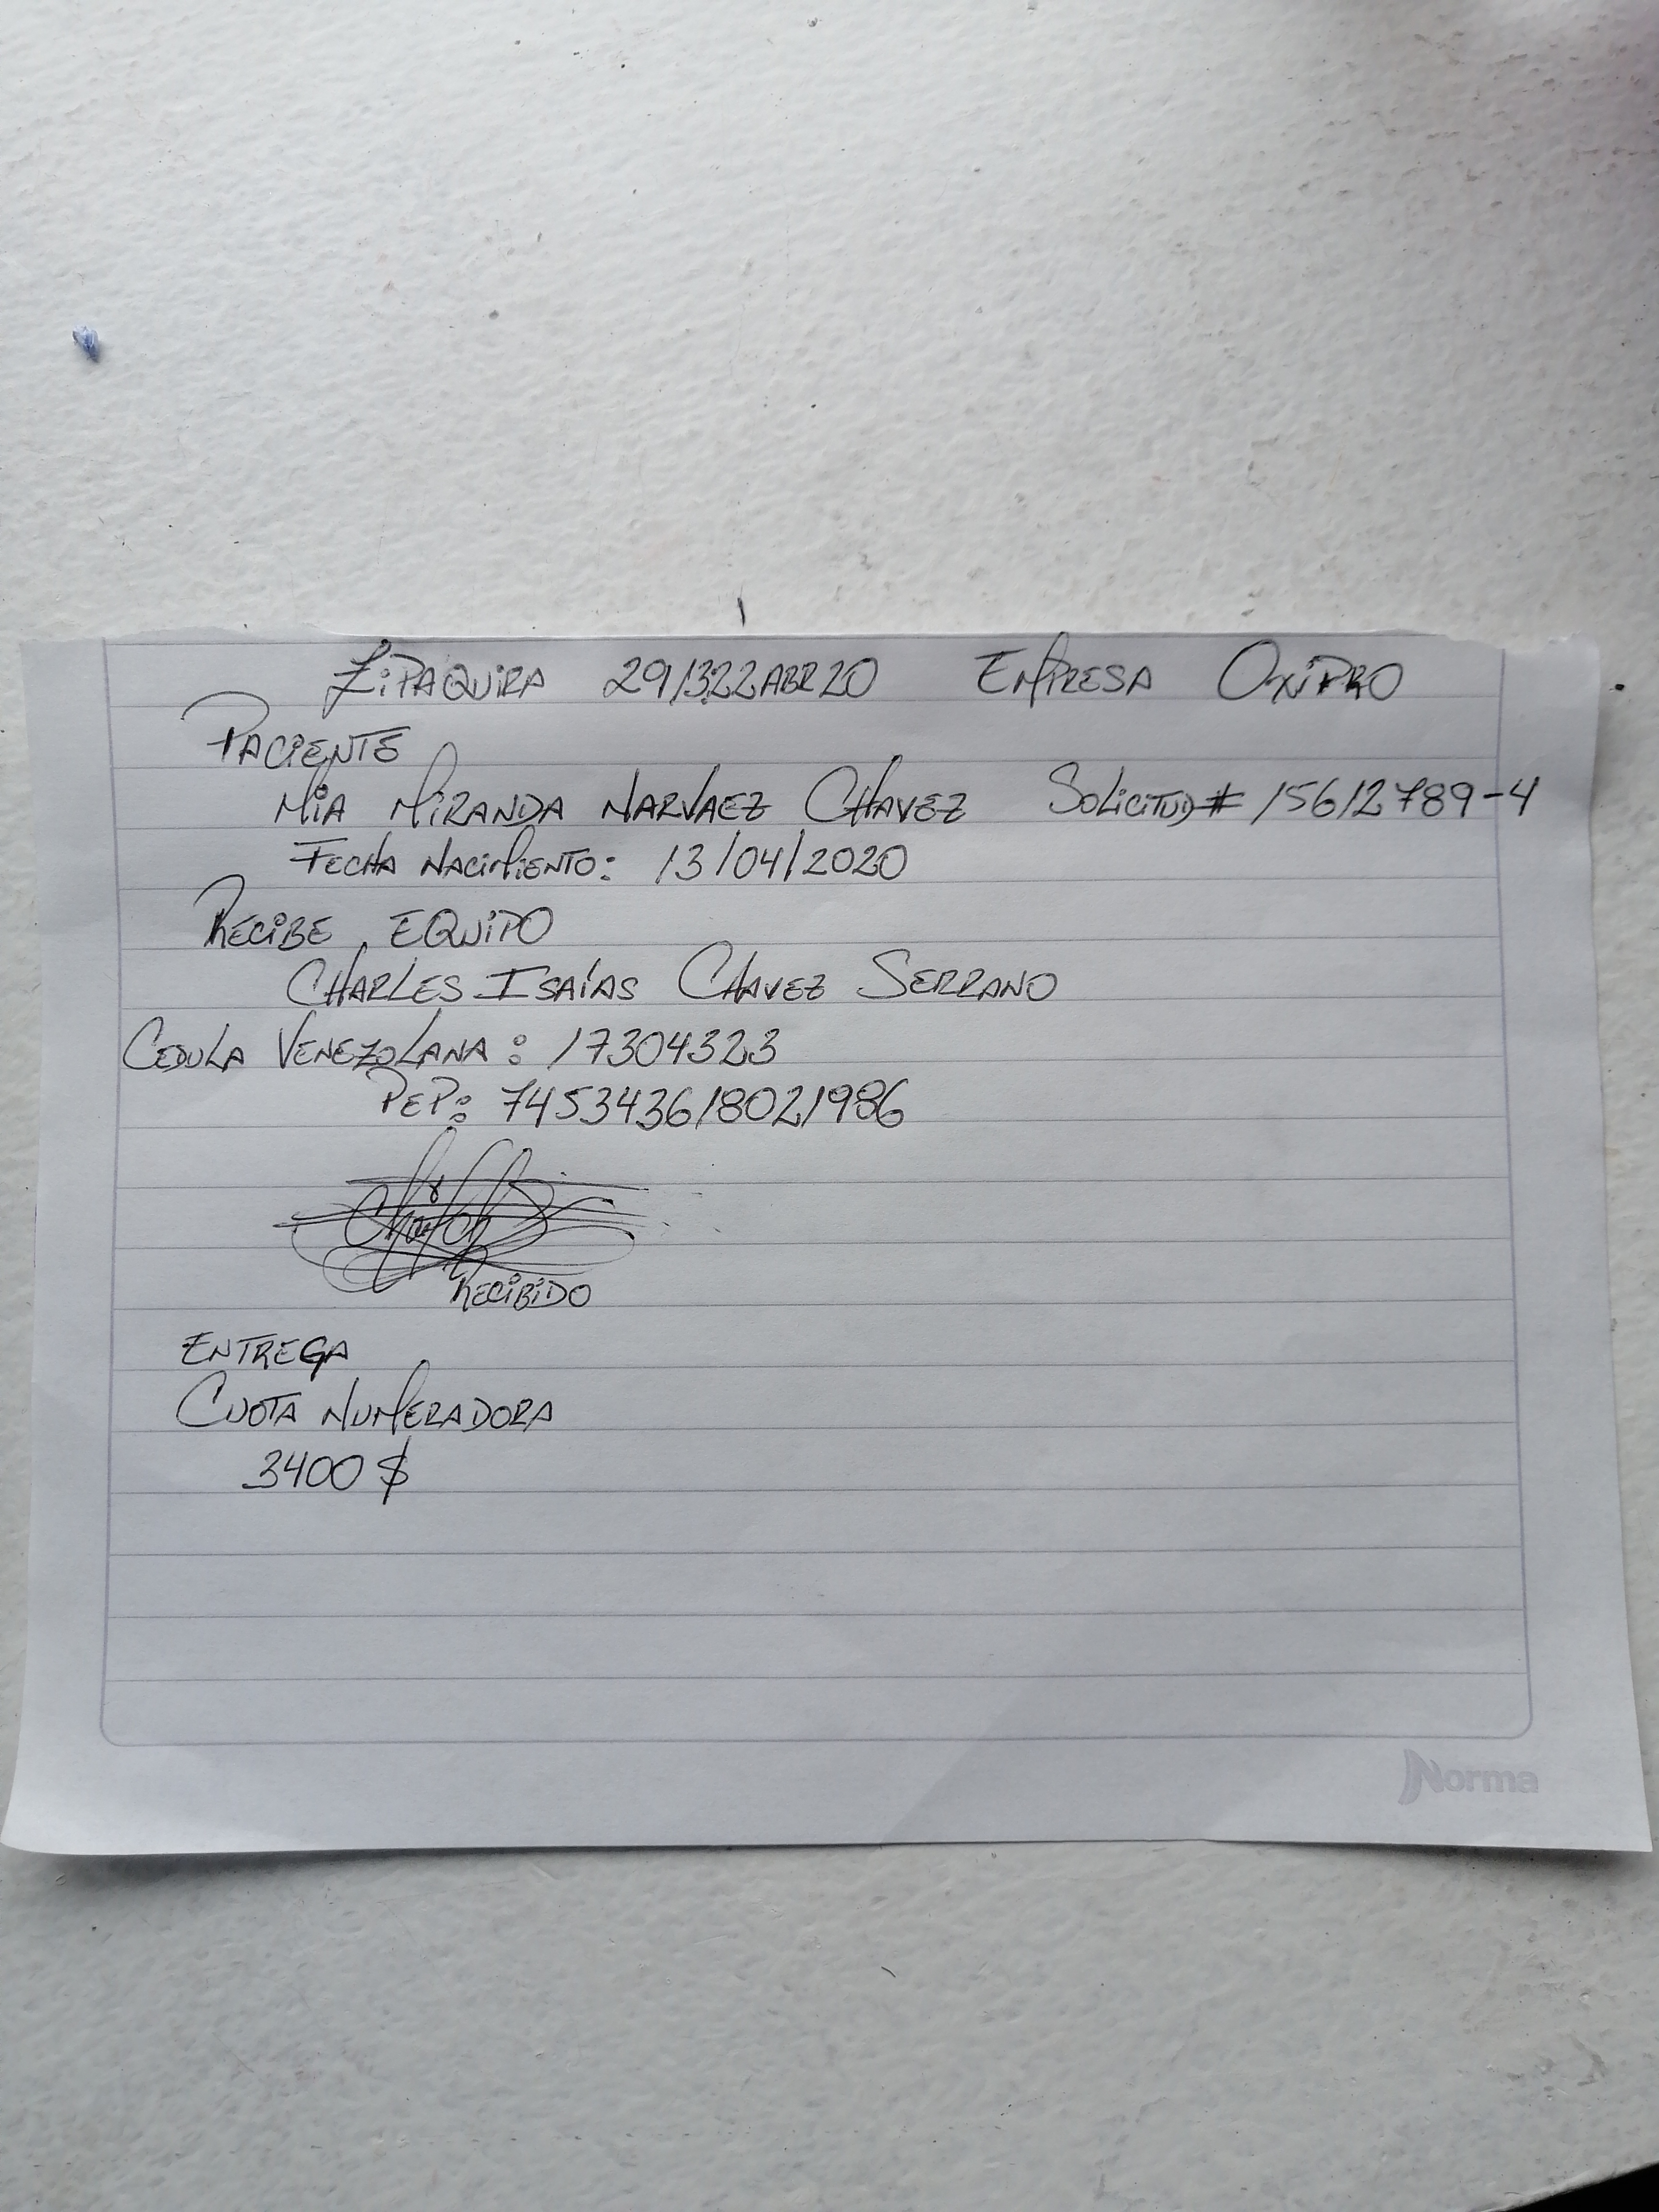 ZiPAQUiRA 291322ABR20 EMPRESA OXiPRO
PACiENTE
MiA MiRANDA NARVAEZ CHAVEZ SOLiCiTUD # 15612789-4
FECHA NACiMiENTO: 13/04/2020
RECiBE EQUiPO
CHARLES ISAíAS CHAVEZ SERRANO
CEDULA VENEZOLANA: 17304323
PEP: 745343618021986
RECiBiDO
ENTREGA
CUOTA NUMERADORA
3400 $
Norma